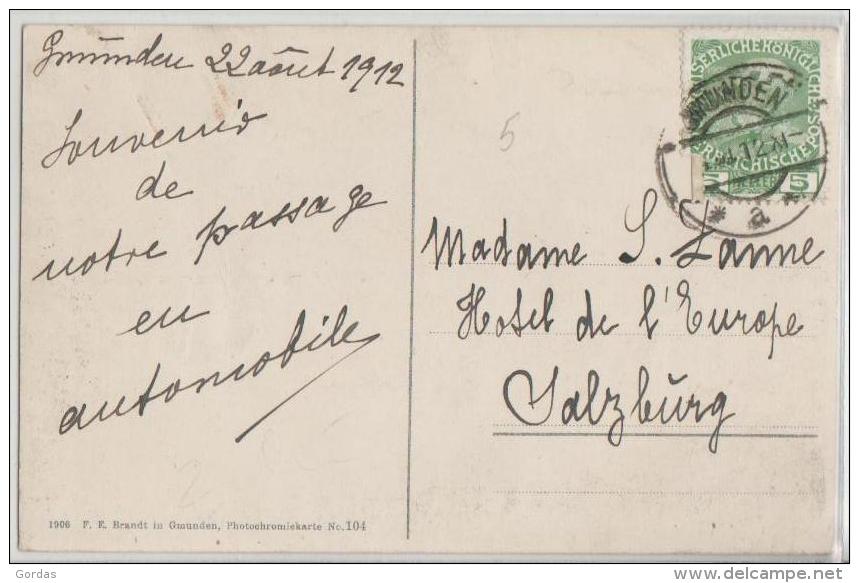 Gmünden 22 août 1912
Souvenir
de
notre passage
en
automobile
1906 F. E. Brandt in Gmunden, Photochromiekarte No. 104
5
KAISERLICHEKÖNIGLICHE
ÖSTERREICHISCHE POST
5 HELLER 5
GMUNDEN
12 XI
* a *
Madame S. Lanne
Hotel de l'Europe
Salzburg
Gordas